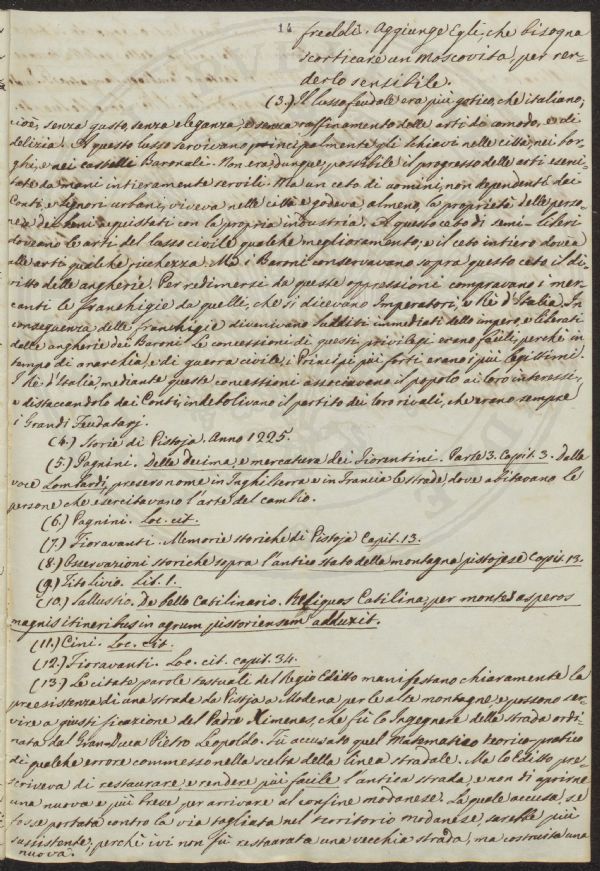 14
freddi. Aggiunge Egli, che bisogna
scorticare un Moscovita, per ren=
derlo sensibile.
(3.) Il lusso feudale era più gotico, che italiano;
cioè, senza gusto, senza eleganza, e senza raffinamento delle arti da comodo, e di
delizia. A questo lusso servivano principalmente gli schiavi nelle città, nei bor=
ghi, e nei castelli Baronali. Non era, dunque, possibile il progresso delle arti eserci
tate da mani intieramente servili. Ma un ceto di uomini, non dependenti dai
Conti, e signori urbani, viveva nelle città e godeva almeno, la proprietà delle perso=
ne, e dei beni acquistati con la propria industria. A questo ceto di semi-liberi
dovevano le arti del lusso civile qualche meglioramento, e il ceto intiero dovea
alle arti qualche ricchezza. Ma i Baroni conservavano sopra questo ceto il di=
ritto delle angherie. Per redimersi da queste oppressioni compravano i mer=
canti le franchigie da quelli, che si dicevano Imperatori, e Rè d'Italia. In
conseguenza delle franchigie divenivano sudditi immediati dello impero, e liberati
dalle angherie dei Baroni. Le concessioni di questi privilegi erano facili, perchè in
tempo di anarchia, e di guerra civile, i Principi più forti erano i più legittimi.
I Rè d'Italia, mediante queste concessioni associavano il popolo ai loro interessi,
e distaccandolo dai Conti, indebolivano il partito dei loro rivali, che erano sempre
i Grandi Feudatarj.
(4.) Storie di Pistoja. Anno 1225.
(5.) Pagnini. Della decima, e mercatura dei Fiorentini. Parte 3. Capit 3. Dalla
voce Lombardi, presero nome in Inghilterra e in Francia le strade, dove abitavano le
persone che esercitavano l'arte del cambio.
(6.) Pagnini. Loc. cit.
(7.) Fioravanti. Memorie storiche di Pistoja Capit. 13.
(8.) Osservazioni storiche sopra l'antico stato della montagna pistojese Capit. 13.
(9.) Tito Livio. Lib. 1.
(10.) Sallustio. De bello Catilinario. Reliquos Catilina, per montes asperos
magnis itineribus in agrum pistoriensem adduxit.
(11.) Cini. Loc. cit.
(12.) Fioravanti. Loc. cit. capit. 34.
(13.) Le citate parole testuali del Regio Editto manifestano chiaramente la
preesistenza di una strada da Pistoja a Modena per le alte montagne, e possono ser=
vire a giustificazione del Padre Ximenes, che fù lo Ingegnere della strada ordi=
nata dal Gran-Duca Pietro Leopoldo. Fù accusato quel Matematico teorico-pratico
di qualche errore commesso nella scelta della linea stradale. Ma lo Editto pre=
scriveva di restaurare, e rendere più facile l'antica strada, e non di aprirne
una nuova e più breve per arrivare al confine modanese. La quale accusa, se
fosse portata contro la via tagliata nel territorio modanese, sarebbe più
sussistente, perchè ivi non fù restaurata una vecchia strada, ma costruita una
nuova.